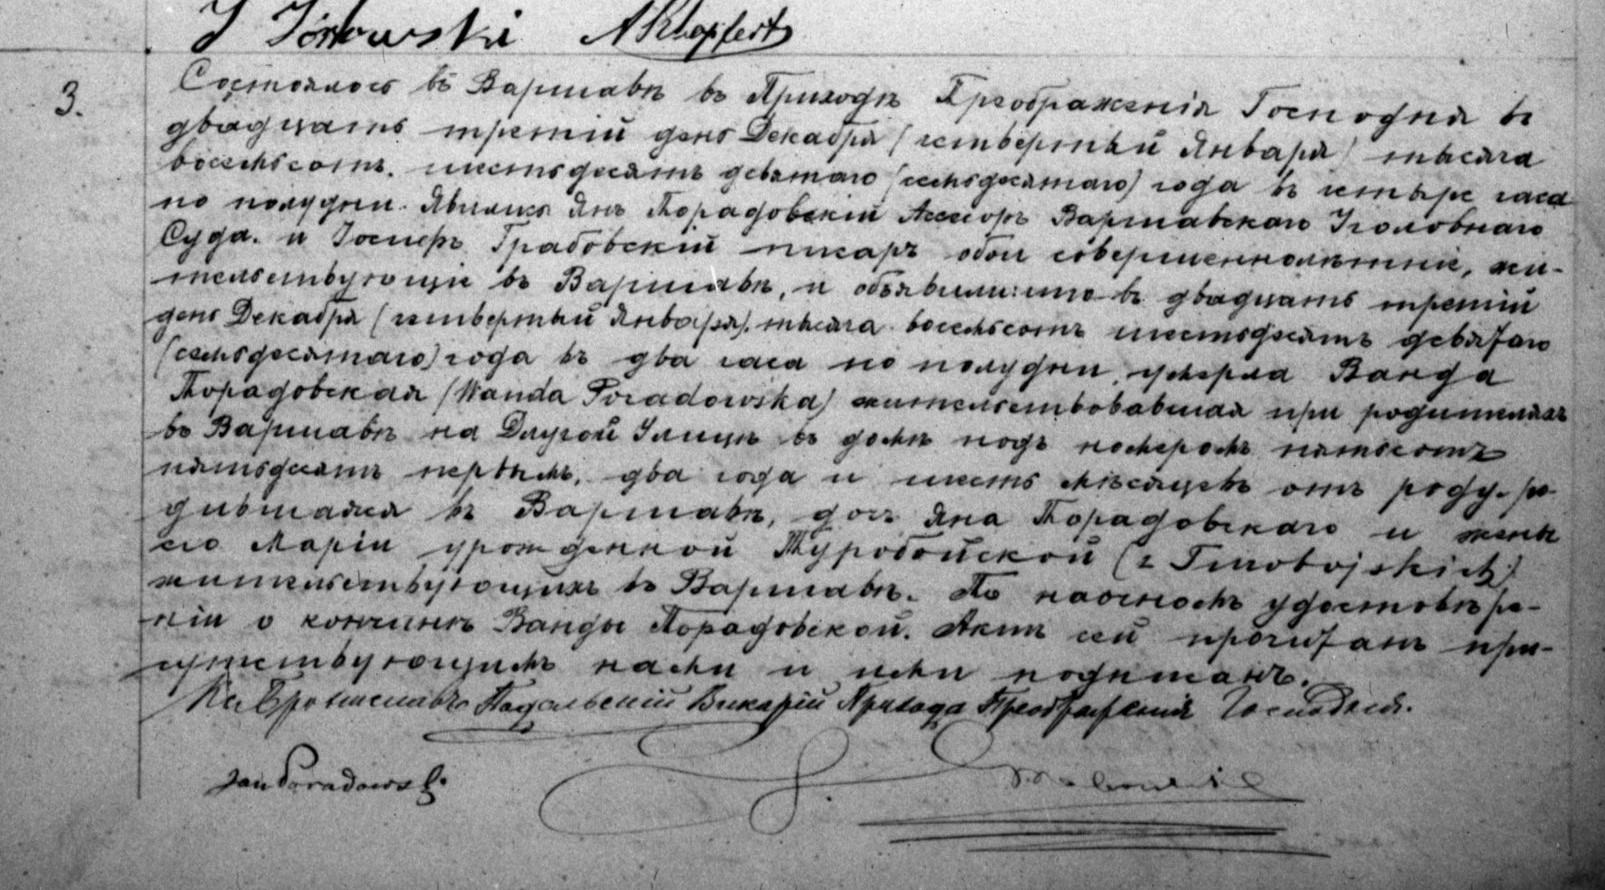 J Jórkowski A Klopfert
3.
Состоялось въ Варшавѣ въ Приходѣ Преображенія Господня въ
двадцать третій день Декабря (четвертый Января) тысяча
восемьсотъ. шестьдесятъ девятаго (семьдесятаго) года въ четыре часа
по полудни. Явились Янъ Порадовскій Асесоръ Варшавскаго Уголовнаго
Суда. и Іосифъ Грабовскій писарь обои совершеннолѣтніе, жи-
тельствующіе въ Варшавѣ, и объявили: что въ двадцать третій
день Декабря (четвертый Января). тысяча восемьсотъ шестьдесятъ девятаго
(семьдесятаго) года въ два часа по полудни, умерла Ванда
Порадовская (Wanda Poradowska) жительствовавшая при родителяхъ
въ Варшавѣ на Длугой Улицѣ въ домѣ подъ номеромъ пятьсотъ
пятьдесятъ первымъ, два года и шесть мѣсяцевъ отъ роду. ро-
дившаяся въ Варшавѣ, дочь Яна Порадовскаго и жены
его Маріи урожденной Туробойской (z Turobojskich)
жительствующихъ въ Варшавѣ. По наочномъ удостовѣре-
ніи о кончинѣ Ванды Порадовской. Актъ сей прочитанъ при-
сутствующимъ нами и ими подписанъ.
Кс. Брониславъ Подольскій Викарій Прихода Преображенія Господня.
Jan Poradowski